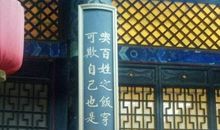 喫百姓之飯穿
可欺自己也是